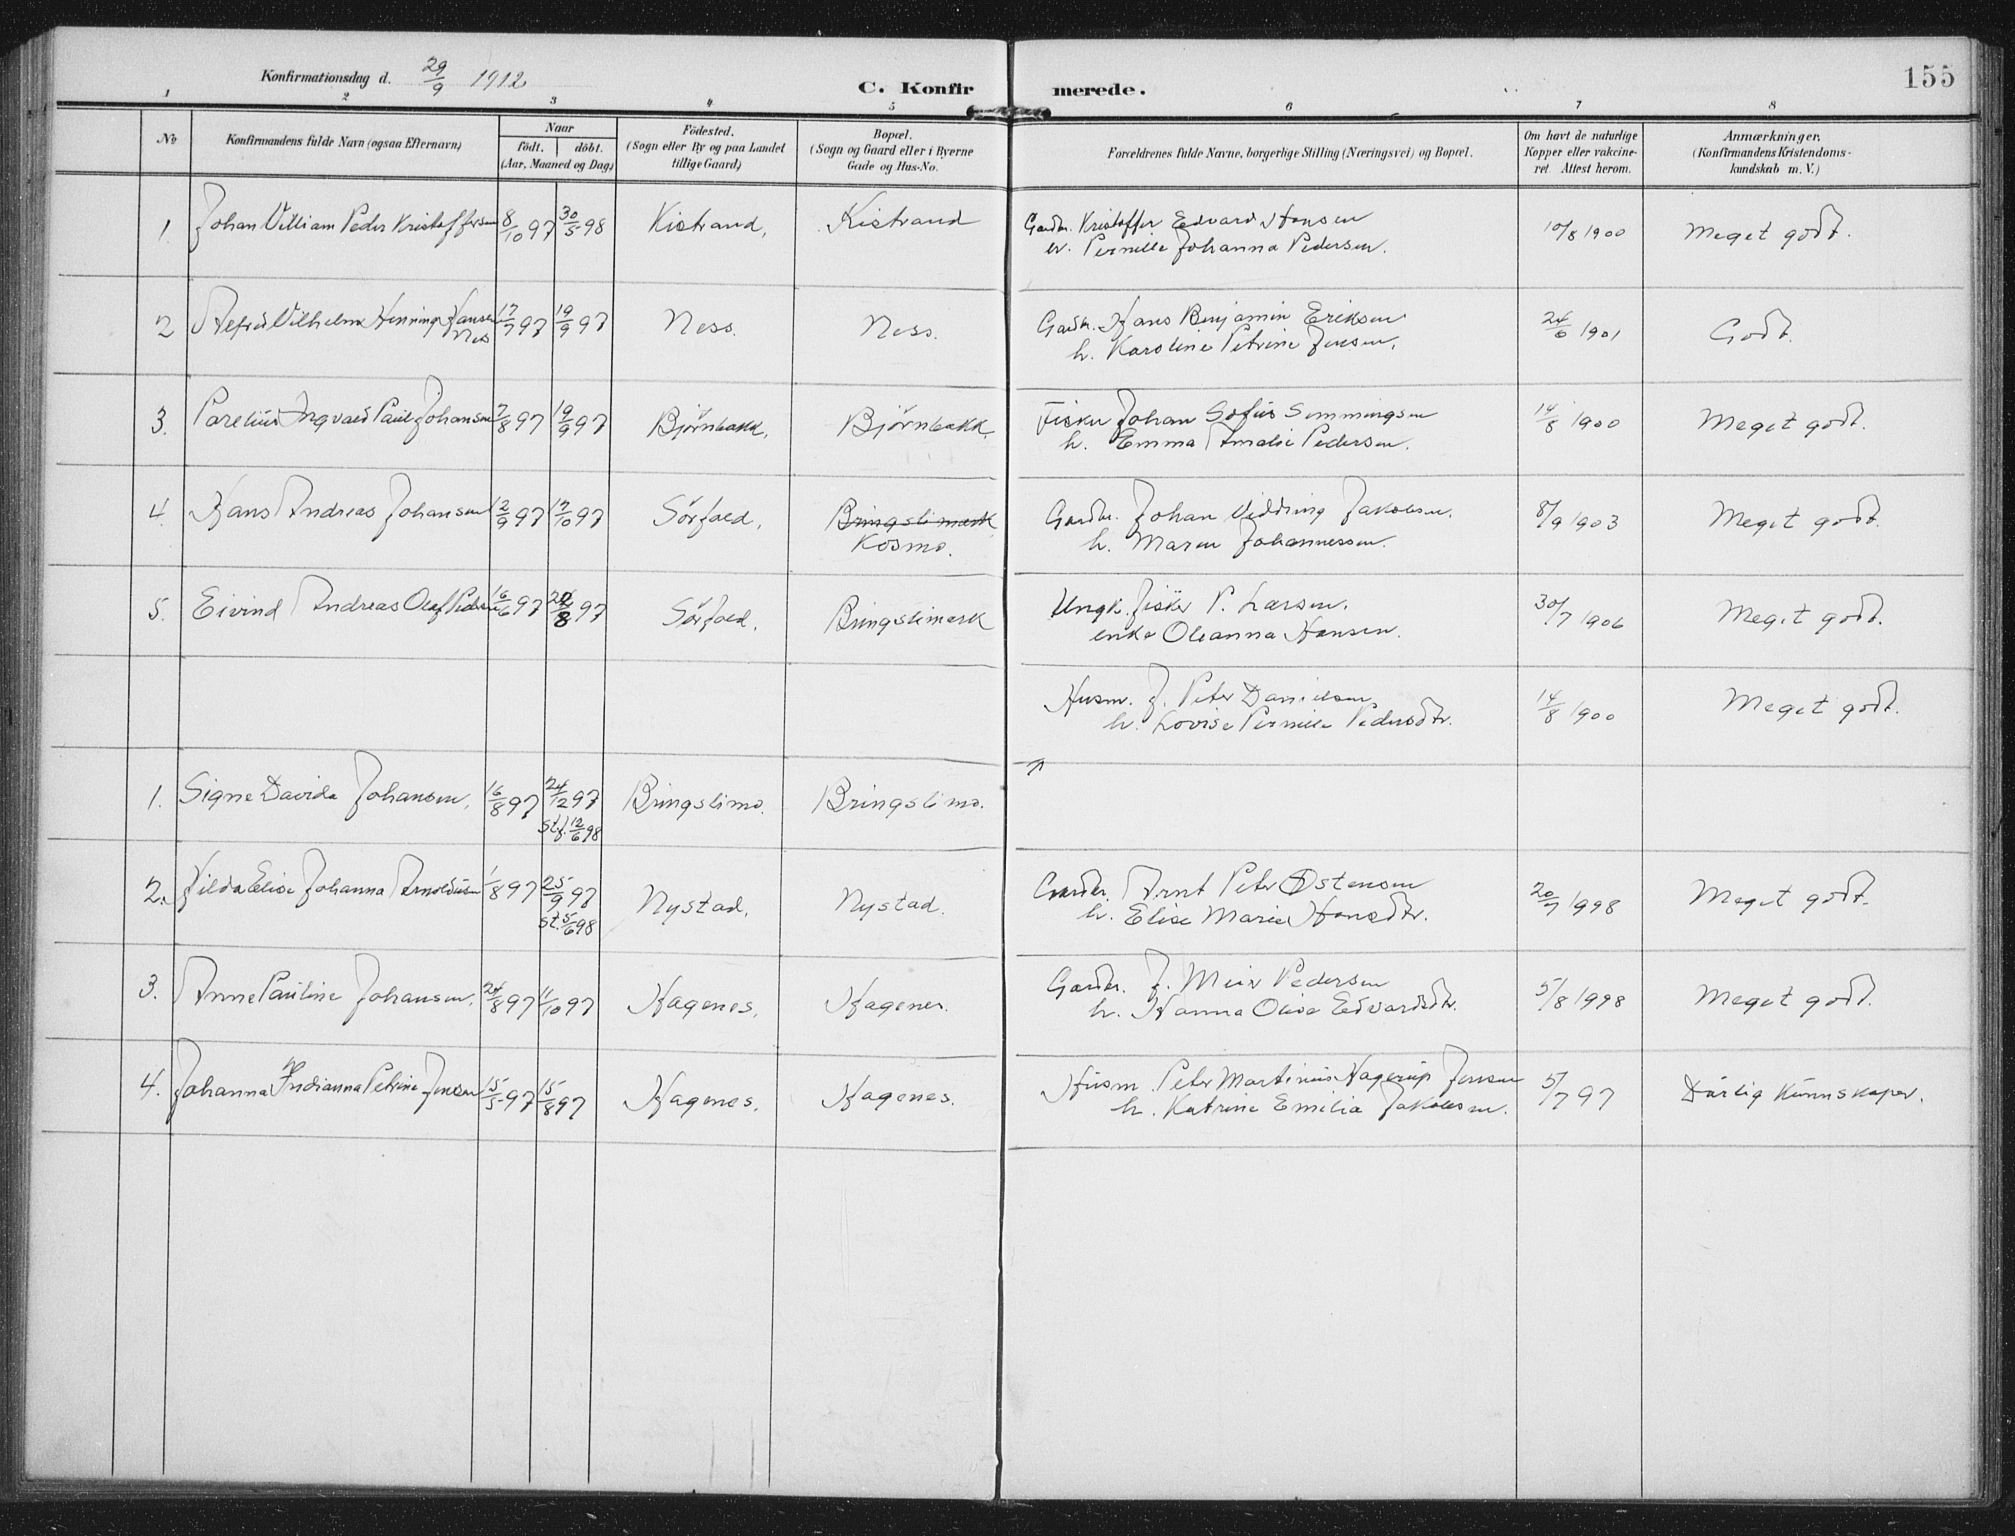 Konfirmationsdag d. 29/9 1912
C. Konfirmerede.
155
1 2 3 4 5 6 7 8
No
Konfirmandens fulde Navn (ogsaa Efternavn)
Naar
födt. döbt.
(Aar, Maaned og Dag)
Födested.
(Sogn eller By og paa Landet
tillige Gaard)
Bopæl.
(Sogn og Gaard eller i Byerne
Gade og Hus-No.
Forældrenes fulde Navne, borgerlige Stilling (Næringsvei) og Bopæl.
Om havt de naturlige
Kopper eller vakcine-
ret. Attest herom.
Anmærkninger.
(Konfirmandens Kristendoms-
kundskab m. V.)
1. Johan Villiam Peder Kristoffersen 8/10 97 30/5 98 Kistrand, Kistrand Gardbr. Kristoffer Edvard Hansen 10/8 1900 Meget godt.
Pernille Johanna Pedersen.
2 Alfred Vilhelm Henning Hansen 17/7 97 19/9 97 Ness. Ness. Gardbr. Hans Benjamin Eriksen 24/6 1901 Godt.
Nes
h. Karoline Petrine Jensen.
3. Parelius Ingvald Paul Johansen 7/8 97 19/9 97 Björnbakk, Björnbakk. Fisker Johan Sofus Simmingsen 14/8 1900 Meget godt.
h. Emma Amalie Pedersen.
4. Hans Andreas Johansen 12/9 97 17/10 97 Sörfold, Bringslimark Gardbr. Johan Viddring Jakobsen. 8/9 1903 Meget godt.
Kosmo.
h. Maren Johannessen.
5. Eivind Andreas Olaf Pedersen 16/6 97 22/8 97 Sörfold. Bringslimark Ungk. fisker P. Larsen. 30/7 1906 Meget godt.
enke Oleanna Hansen.
Husm. J. Peter Danielsen 14/8 1900 Meget godt.
h. Lovise Pernille Pedersdtr.
1. Signe Davida Johansen, 16/8 97 24/12 97 Bringslimo. Bringslimo.
st.f. 12/6 98
2. Hilda Elise Johanna Arnoldusen 1/8 97 25/9 97 Nystad, Nystad. Gardbr. Arnt Peter Ostensen 20/7 1998 Meget godt.
st. 5/6 98
h. Elise Marie Hansdtr.
3. Anne Pauline Johansen. 24/8 97 11/10 97 Hagenes, Hagenes. Gardbr. J. Meir Pedersen 5/8 1998 Meget godt.
h. Hanna Oliva Edvardsdtr.
4. Johanna Indianna Petrine Jensen 15/5 97 15/8 97 Hagenes, Hagenes. Husm. Peter Martinius Hagerup Jensen 5/7 97 Dårlig kunnskaper.
h. Katrine Emilia Jakobsen.